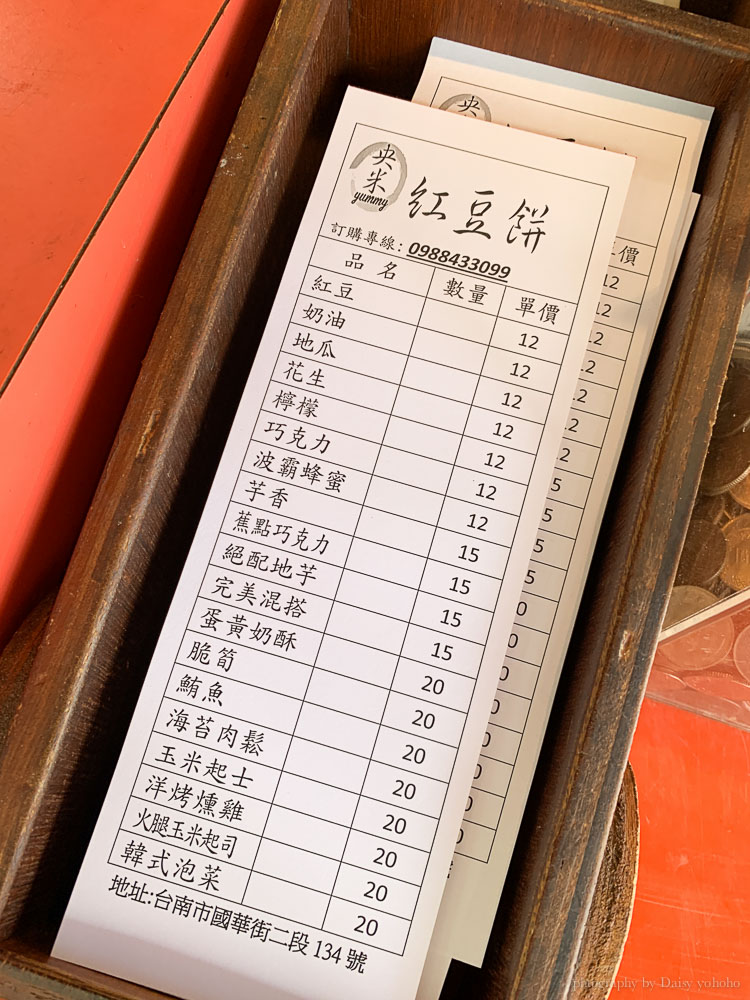 央米
yummy
紅豆餅
訂購專線：0988433099
品名 數量 單價
紅豆 12
奶油 12
地瓜 12
花生 12
檸檬 12
巧克力 12
波霸蜂蜜 12
芋香 15
蕉點巧克力 15
絕配地芋 15
完美混搭 15
蛋黃奶酥 20
脆筍 20
鮪魚 20
海苔肉鬆 20
玉米起士 20
洋烤燻雞 20
火腿玉米起司 20
韓式泡菜 20
地址:台南市國華街二段 134 號
央
價
12
photography by Daisy yohoho